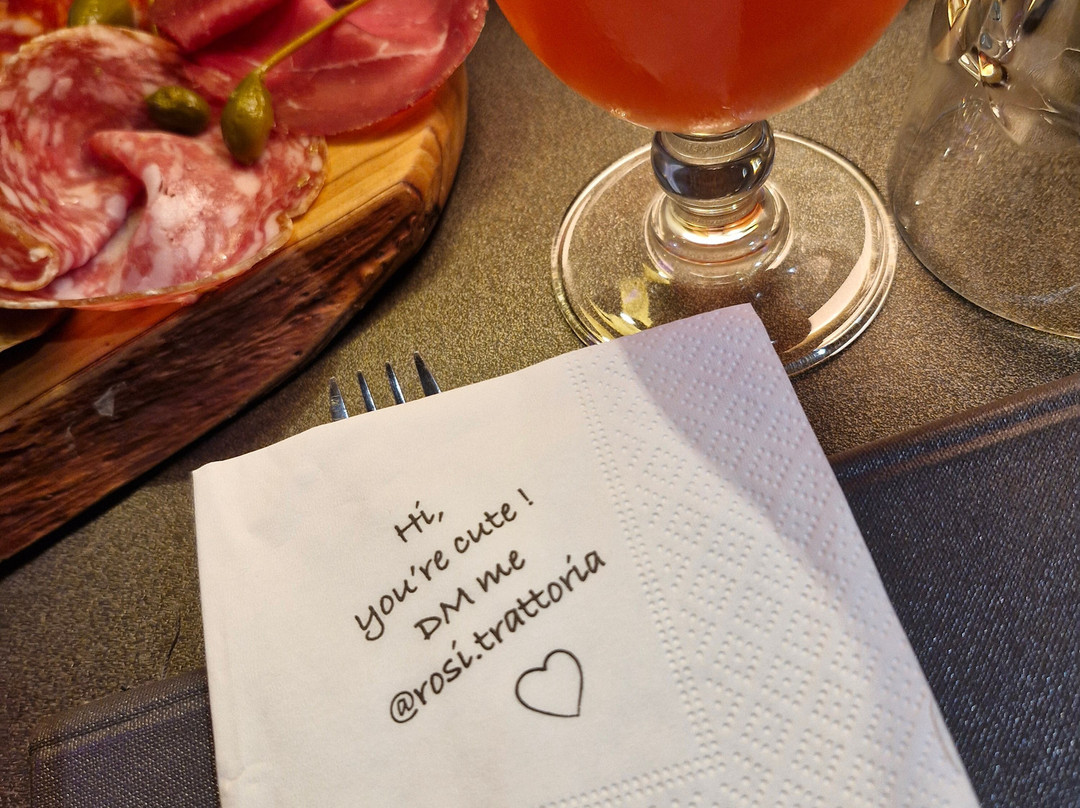 Hi,
you're cute !
DM me
@rosi.trattoria